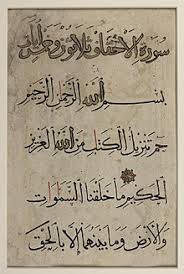 سورة الاحقاف ثلاثون وخمس ايات
بسم الله الرحمن الرحيم
حم تنزيل الكتب من الله العزيز
الحكيم ما خلقنا السموات
والارض وما بينهما الا بالحق